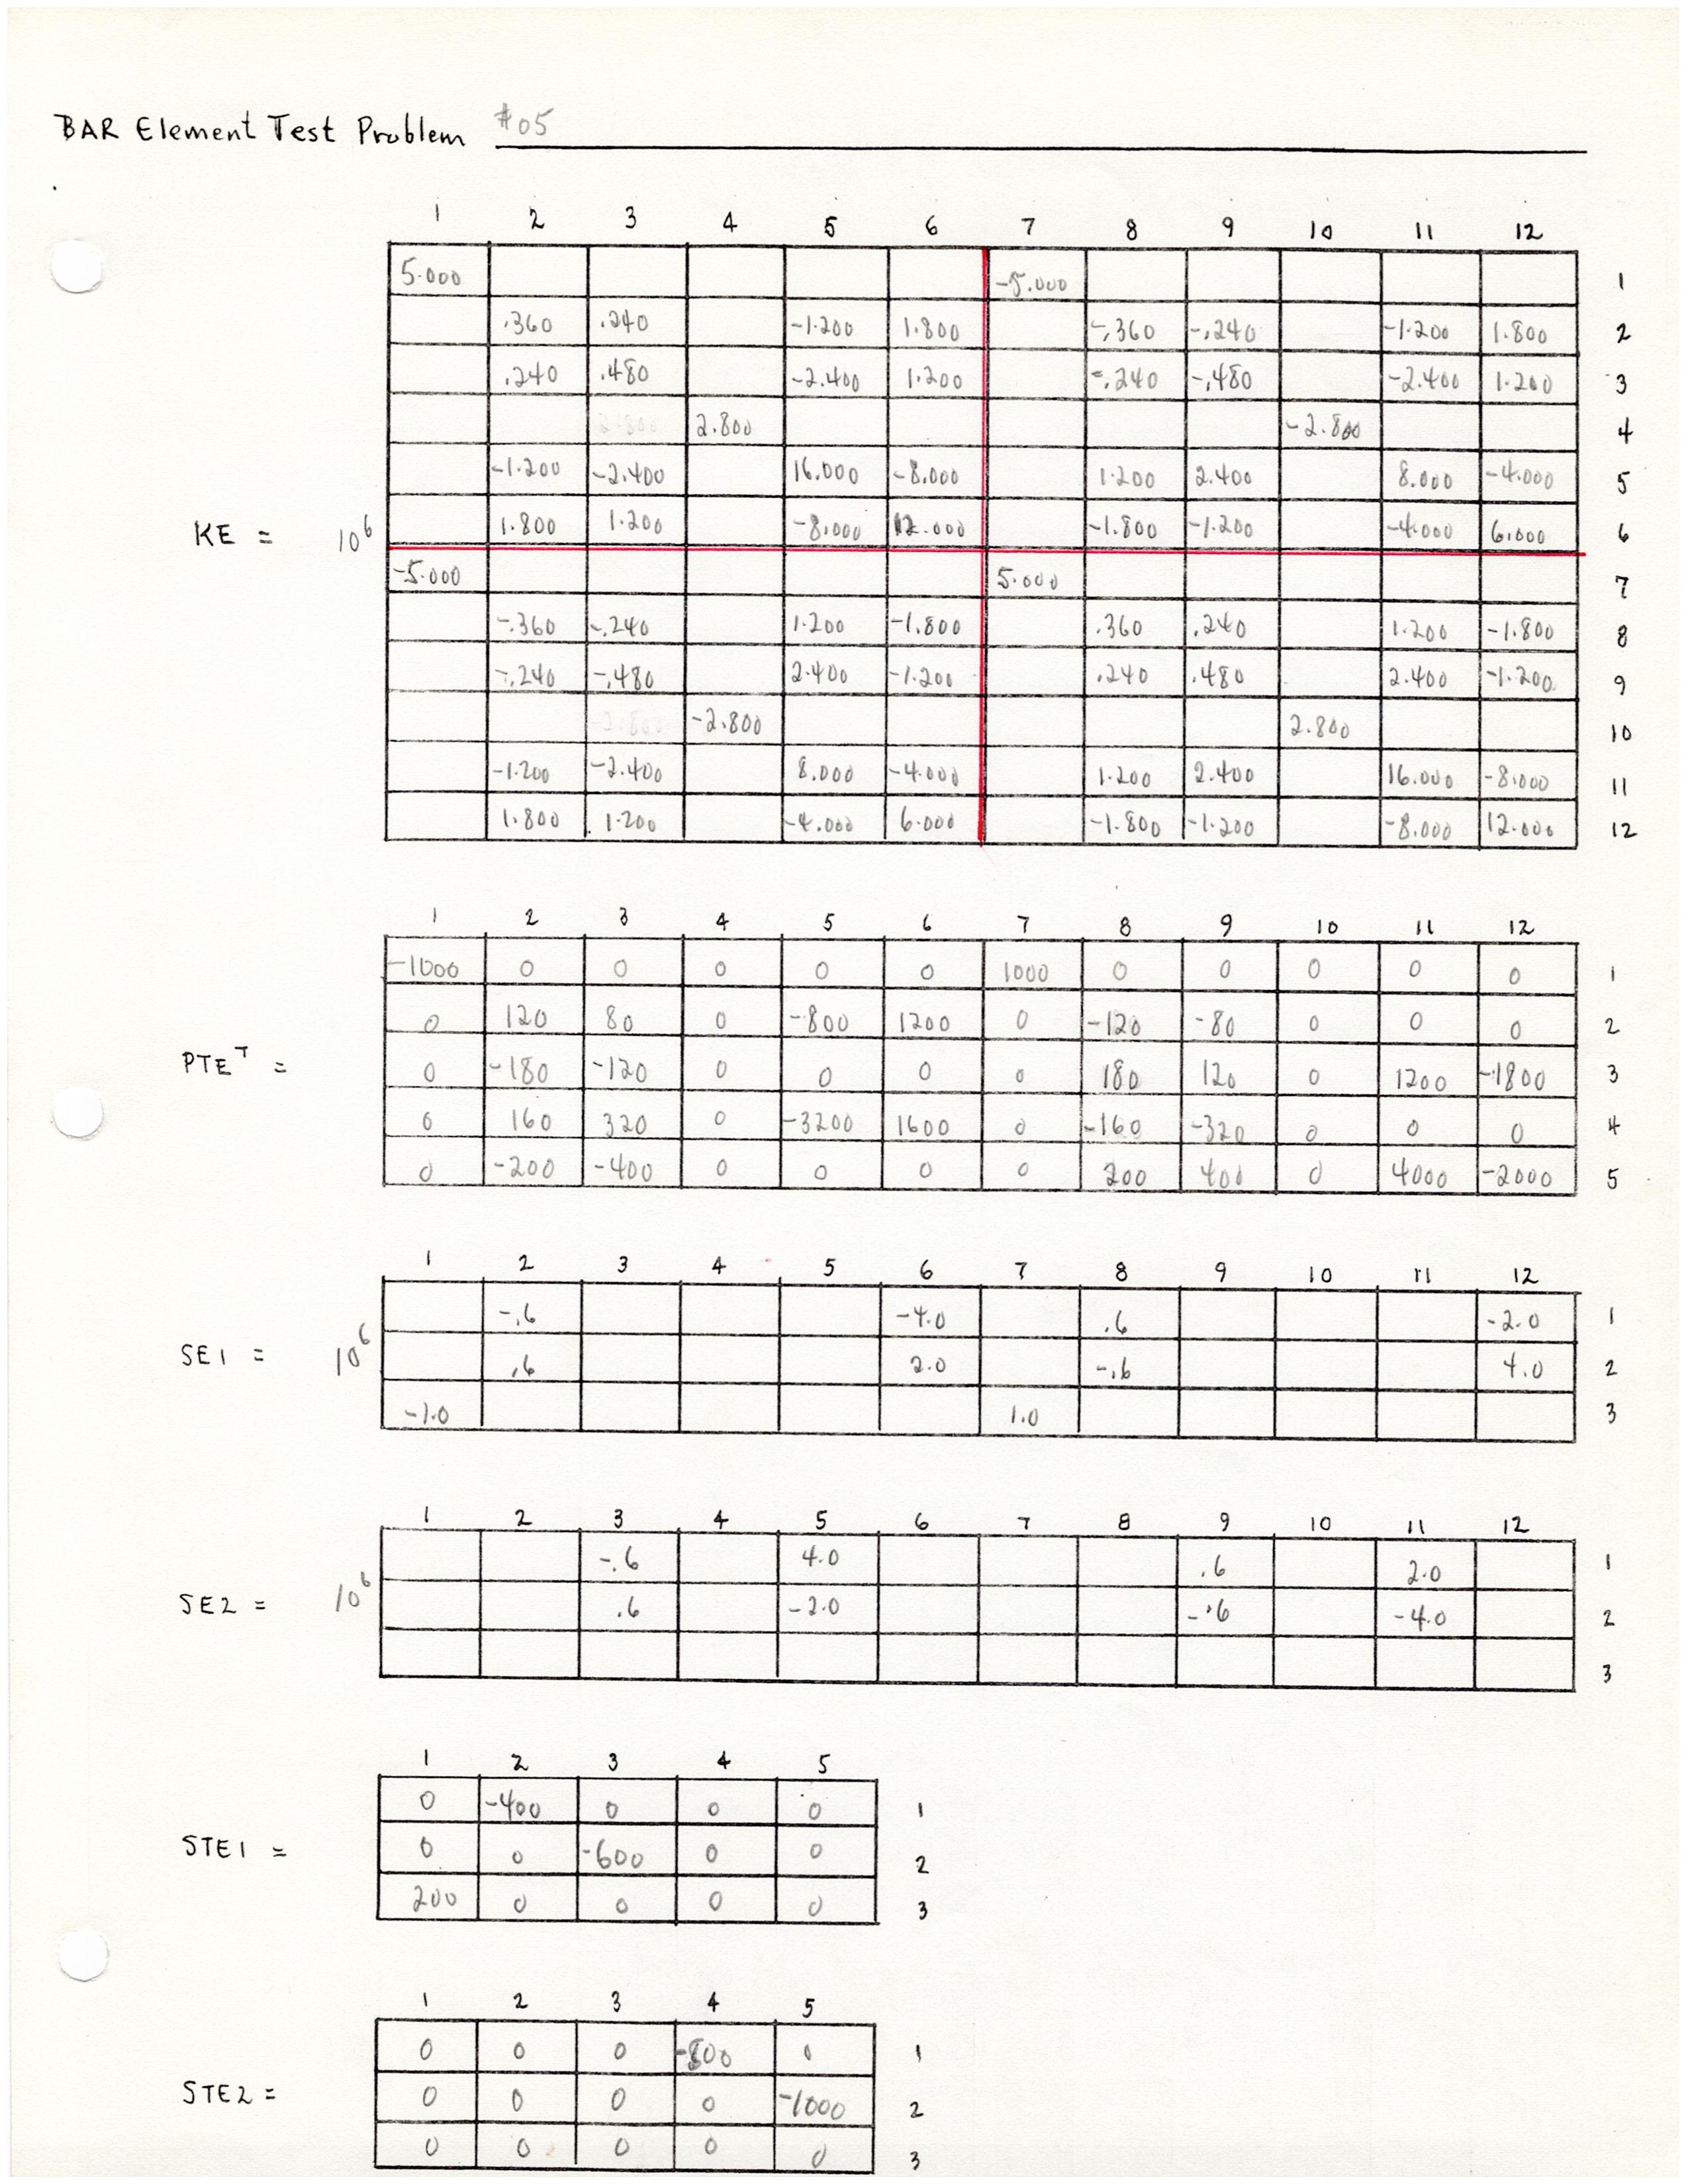 BAR Element Test Problem #05
1 2 3 4 5 6 7 8 9 10 11 12
5.000 -5.000 1
.360 .240 -1.200 1.800 -.360 -.240 -1.200 1.800 2
.240 .480 -2.400 1.200 -.240 -.480 -2.400 1.200 3
2.800 2.800 -2.800 4
-1.200 -2.400 16.000 -8.000 1.200 2.400 8.000 -4.000 5
KE = 10⁶ 1.800 1.200 -8.000 12.000 -1.800 -1.200 -4.000 6.000 6
-5.000 5.000 7
-.360 -.240 1.200 -1.800 .360 .240 1.200 -1.800 8
-.240 -.480 2.400 -1.200 .240 .480 2.400 -1.200 9
-2.800 -2.800 2.800 10
-1.200 -2.400 8.000 -4.000 1.200 2.400 16.000 -8.000 11
1.800 1.200 -4.000 6.000 -1.800 -1.200 -8.000 12.000 12
1 2 3 4 5 6 7 8 9 10 11 12
-1000 0 0 0 0 0 1000 0 0 0 0 0 1
0 120 80 0 -800 1200 0 -120 -80 0 0 0 2
PTEᵀ = 0 -180 -120 0 0 0 0 180 120 0 1200 -1800 3
0 160 320 0 -3200 1600 0 -160 -320 0 0 0 4
0 -200 -400 0 0 0 0 200 400 0 4000 -2000 5
1 2 3 4 5 6 7 8 9 10 11 12
-.6 -4.0 .6 -2.0 1
SE1 = 10⁶ .6 2.0 -.6 4.0 2
-1.0 1.0 3
1 2 3 4 5 6 7 8 9 10 11 12
-.6 4.0 .6 2.0 1
SE2 = 10⁶ .6 -2.0 -.6 -4.0 2
3
1 2 3 4 5
0 -400 0 0 0 1
STE1 = 0 0 -600 0 0 2
200 0 0 0 0 3
1 2 3 4 5
0 0 0 -800 0 1
STE2 = 0 0 0 0 -1000 2
0 0 0 0 0 3